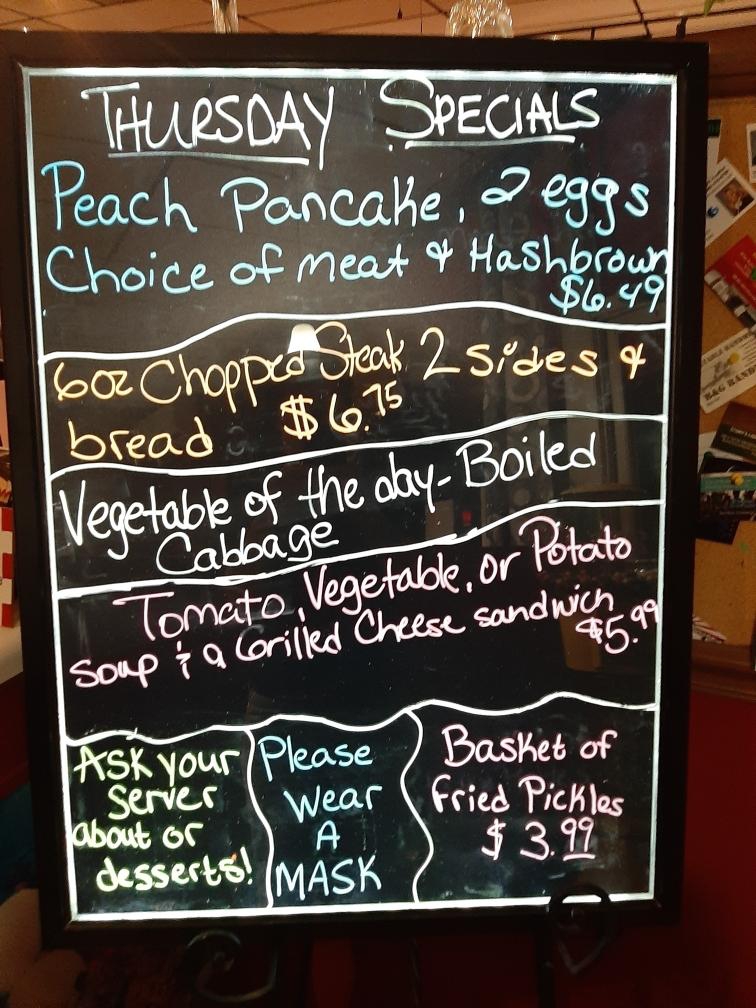 THURSDAY SPECIALS
Peach Pancake, 2 eggs
Choice of meat & Hashbrown
$6.49
6oz Chopped Steak 2 Sides &
bread $6.75
Vegetable of the day- Boiled
Cabbage
Tomato, Vegetable, or Potato
Soup & a Grilled Cheese sandwich
$5.99
ASK your
Server
about or
desserts!
Please
Wear
A
MASK
Basket of
Fried Pickles
$ 3.99